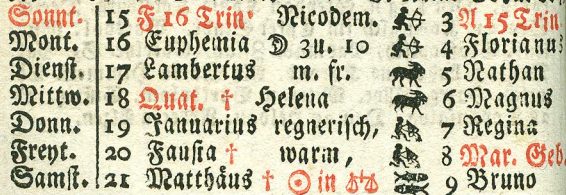 Sonnt. 15 F 16 Trin. Nicodem. 3 A 15 Trin
Mont. 16 Euphemia ☽ zu. 10 4 Florianus
Dienst. 17 Lambertus m. fr. 5 Nathan
Mittw. 18 Quat. † Helena 6 Magnus
Donn. 19 Januarius regnerisch, 7 Regina
Freyt. 20 Fausta † warm, 8 Mar. Geb.
Samst. 21 Matthäus † ☉ in ♎ 9 Bruno